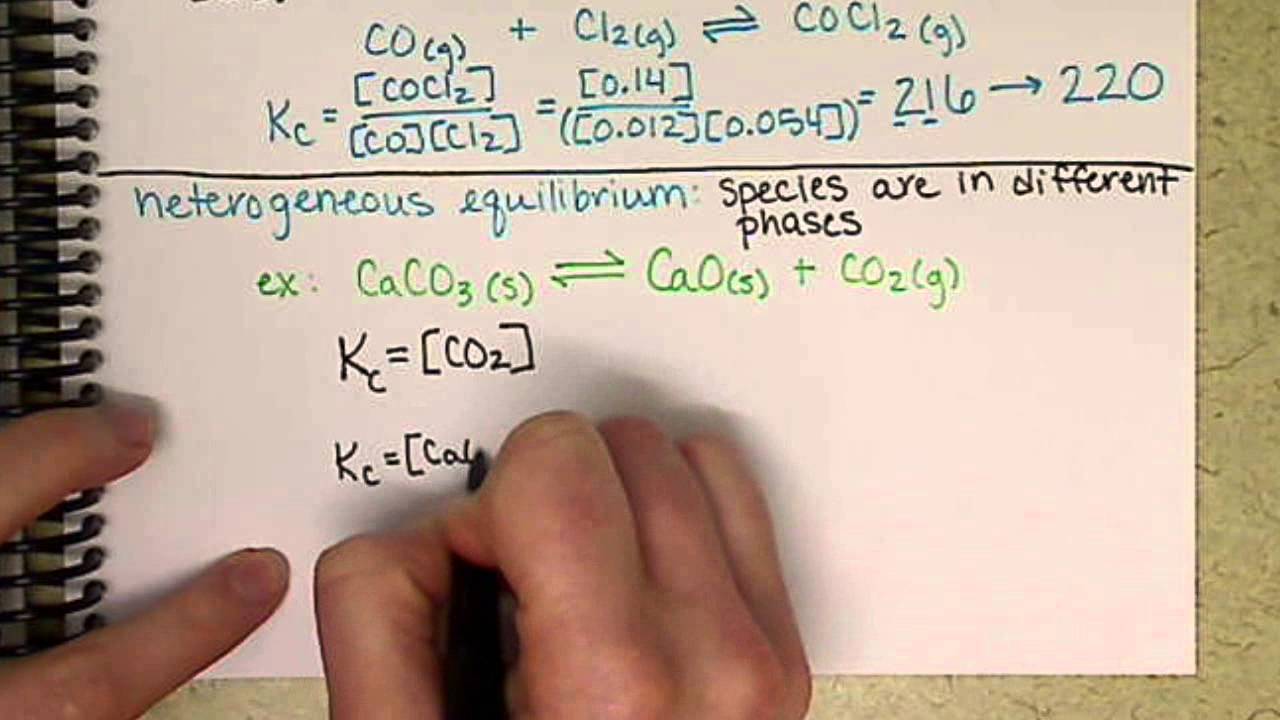 CO(g) + Cl2(g) ⇌ COCl2(g)
Kc = [COCl2] / [CO][Cl2] = [0.14] / ([0.012][0.054]) = 216 → 220
heterogeneous equilibrium: species are in different
phases
ex: CaCO3(s) ⇌ CaO(s) + CO2(g)
Kc = [CO2]
Kc = [Ca